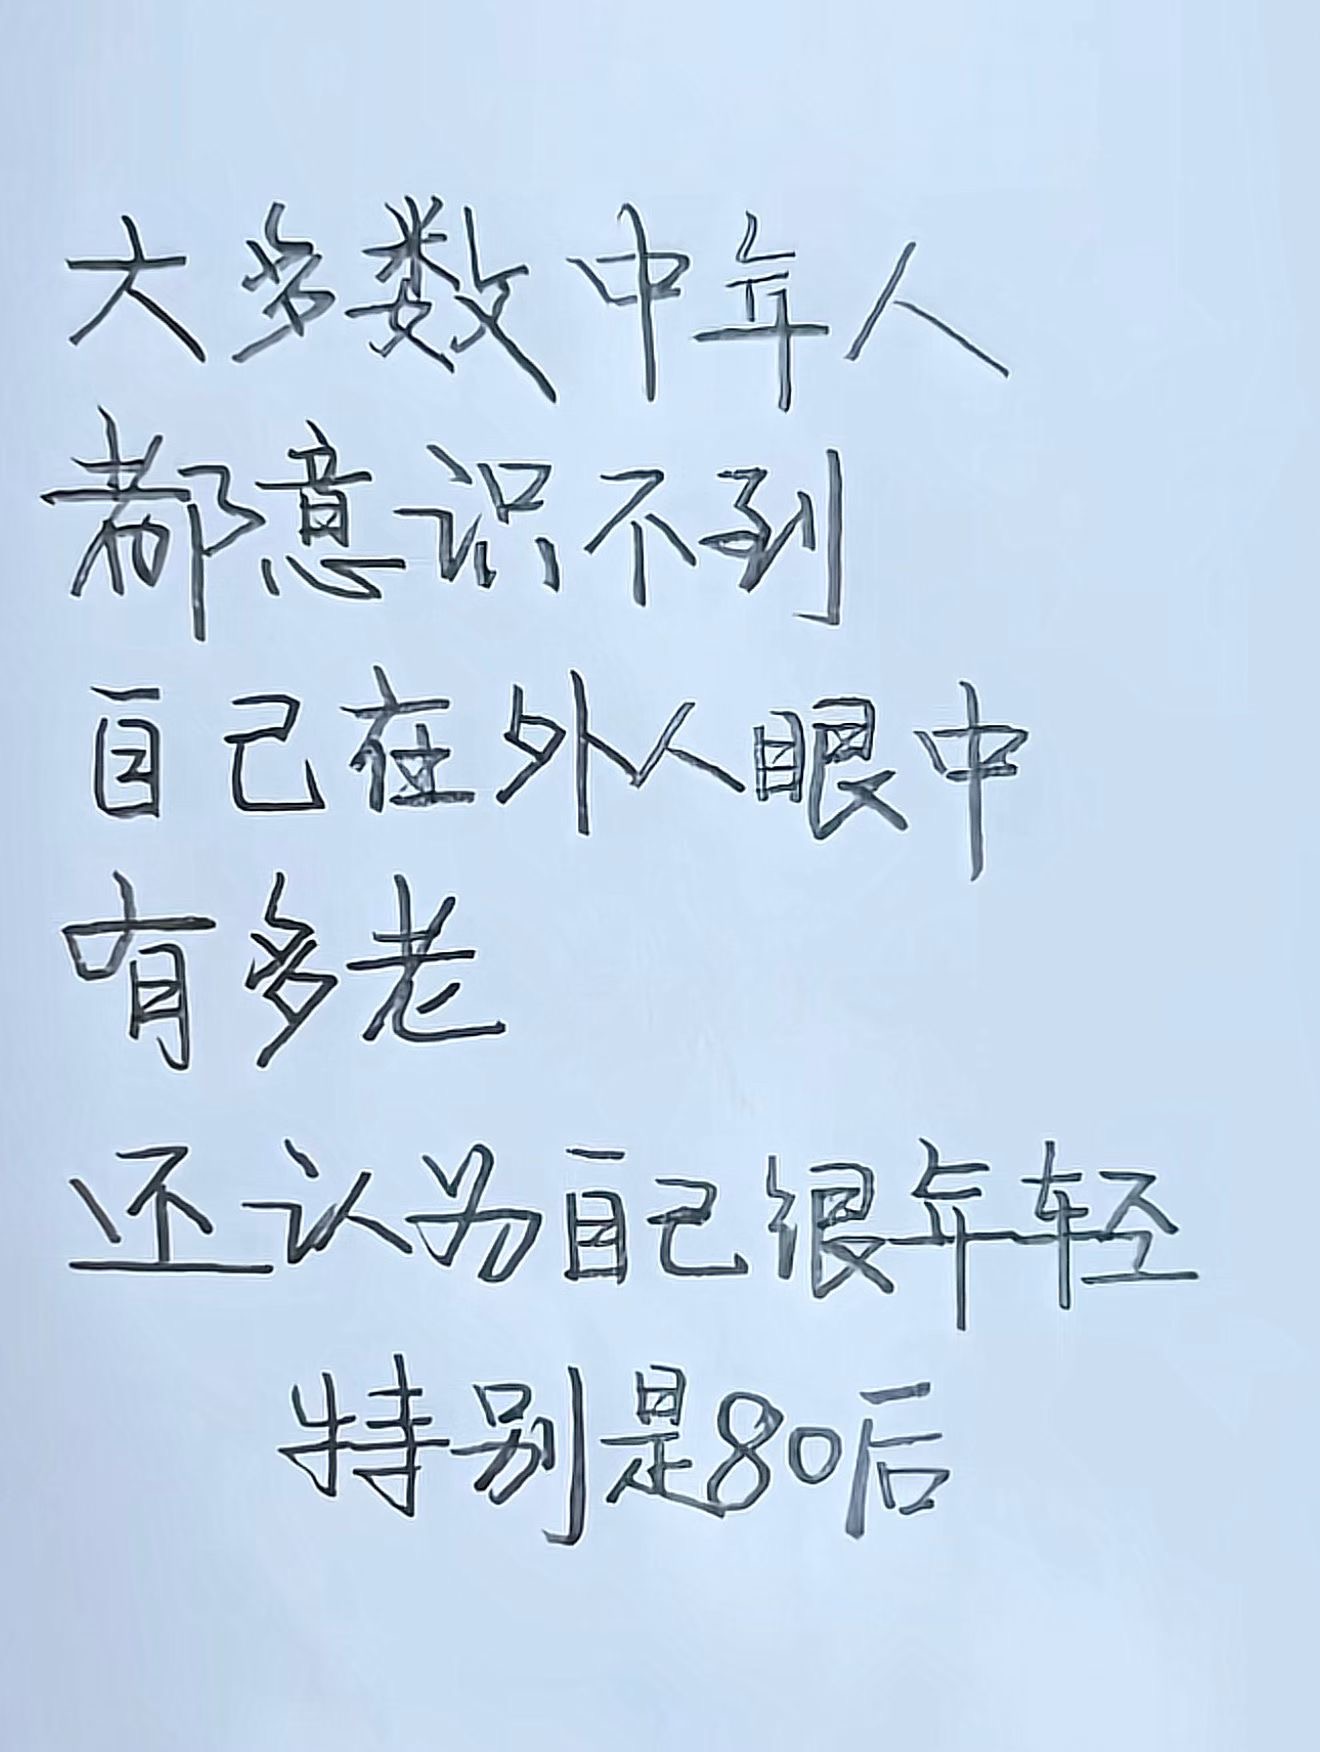 大多数中年人
都意识不到
自己在外人眼中
有多老
还认为自己很年轻
特别是80后